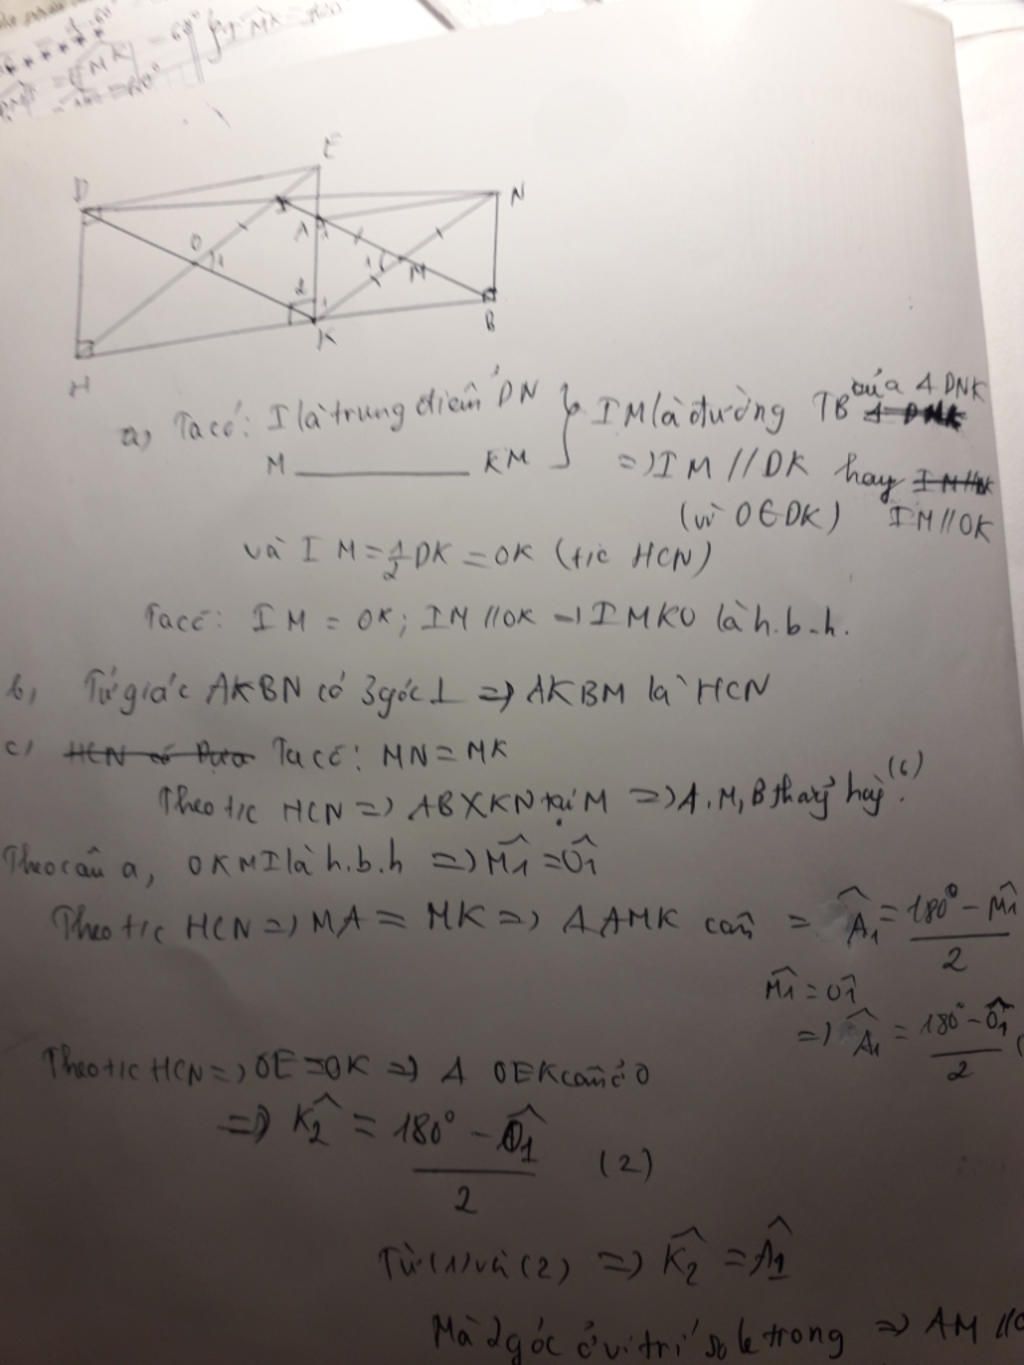 E
D
N
A
O
1
1
M
2
1
K
B
H
a) Ta có: I là trung điểm DN } IM là đường TB của Δ DNK
M ———— KM => IM // DK hay
(vì O ∈ DK) IM // OK
và IM = 1/2 DK = OK (t/c HCN)
Ta có: IM = OK; IM // OK → IMKO là h.b.h.
b, Tứ giác AKBN có 3 góc ⊥ => AKBM là HCN
c, Ta có: MN = MK
Theo t/c HCN => AB X KN tại M => A, M, B thẳng hàng (6)
Theo câu a, OKMI là h.b.h => M̂1 = Ô1
Theo t/c HCN => MA = MK => Δ AMK cân = Â1 = (180° - M̂1)/2
M̂1 = Ô1
=> Â1 = (180° - Ô1)/2
Theo t/c HCN => OE = OK => Δ OEK cân ở O
=> K̂2 = (180° - Ô1)/2 (2)
Từ (1) và (2) => K̂2 = Â1
Mà 2 góc ở vị trí so le trong => AM //